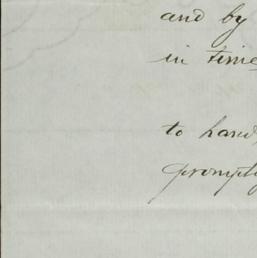 and by
in time
to hand
promptly